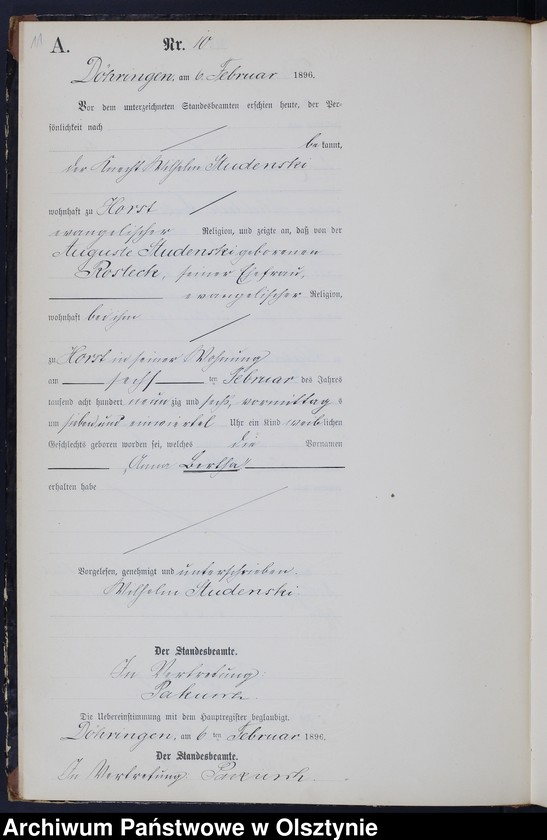 A. Nr. 10
Döhringen, am 6. Februar 1896.
Vor dem unterzeichneten Standesbeamten erschien heute, der Per-
sönlichkeit nach
bekannt,
der Knecht Wilhelm Studenski
wohnhaft zu Horst
evangelischer Religion, und zeigte an, daß von der
Auguste Studenski geborenen
Rosteck, seiner Ehefrau,
evangelischer Religion,
wohnhaft bei ihm
zu Horst in seiner Wohnung
am sechs ten Februar des Jahres
tausend acht hundert neunzig und sechs, vormittags
um sieben und einviertel Uhr ein Kind weiblichen
Geschlechts geboren worden sei, welches die Vornamen
„Anna Bertha“
erhalten habe
Vorgelesen, genehmigt und unterschrieben.
Wilhelm Studenski
Der Standesbeamte.
In Vertretung:
Die Uebereinstimmung mit dem Hauptregister beglaubigt.
Döhringen, am 6 ten Februar 1896.
Der Standesbeamte.
In Vertretung
Archiwum Państwowe w Olsztynie